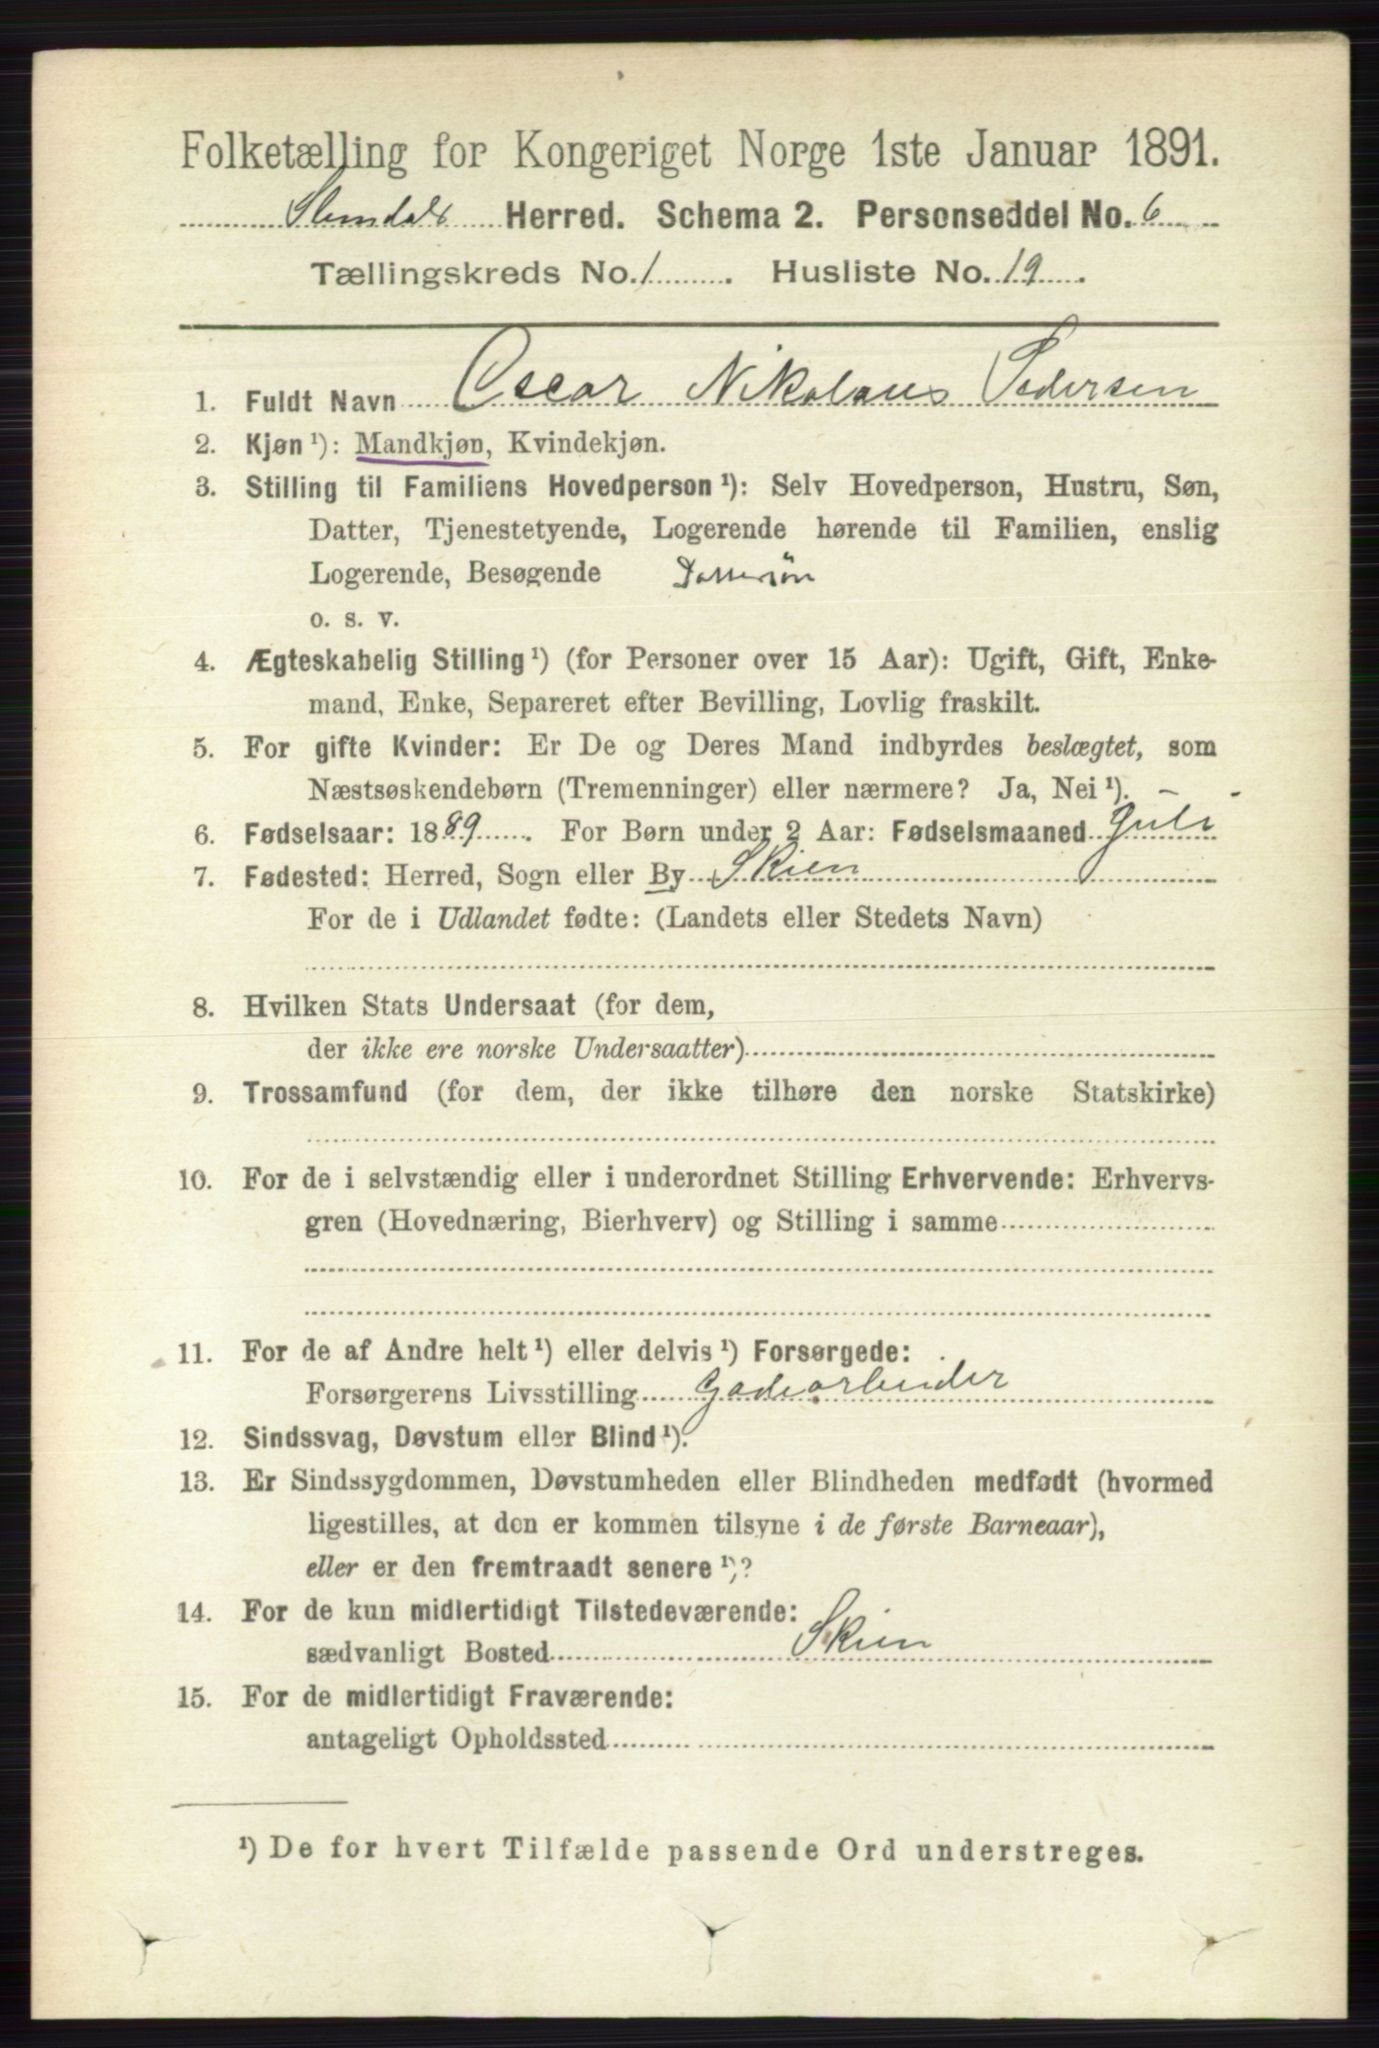 Folketælling for Kongeriget Norge 1ste Januar 1891.
Slemdals Herred. Schema 2. Personseddel No. 6
Tællingskreds No. 1. Husliste No. 19.
1. Fuldt Navn Oscar Nikolaus Pedersen
2. Kjøn ¹): Mandkjøn, Kvindekjøn.
3. Stilling til Familiens Hovedperson ¹): Selv Hovedperson, Hustru, Søn,
Datter, Tjenestetyende, Logerende hørende til Familien, enslig
Logerende, Besøgende Dattersøn
o. s. v.
4. Ægteskabelig Stilling ¹) (for Personer over 15 Aar): Ugift, Gift, Enke-
mand, Enke, Separeret efter Bevilling, Lovlig fraskilt.
5. For gifte Kvinder: Er De og Deres Mand indbyrdes beslægtet, som
Næstsøskendebørn (Tremenninger) eller nærmere? Ja, Nei ¹). - -
6. Fødselsaar: 1889. For Børn under 2 Aar: Fødselsmaaned Juli
7. Fødested: Herred, Sogn eller By Skien
For de i Udlandet fødte: (Landets eller Stedets Navn)
8. Hvilken Stats Undersaat (for dem,
der ikke ere norske Undersaatter)
9. Trossamfund (for dem, der ikke tilhøre den norske Statskirke)
10. For de i selvstændig eller i underordnet Stilling Erhvervende: Erhvervs-
gren (Hovednæring, Bierhverv) og Stilling i samme
11. For de af Andre helt ¹) eller delvis ¹) Forsørgede:
Forsørgerens Livsstilling Gadearbeider
12. Sindssvag, Døvstum eller Blind ¹).
13. Er Sindssygdommen, Døvstumheden eller Blindheden medfødt (hvormed
ligestilles, at den er kommen tilsyne i de første Barneaar),
eller er den fremtraadt senere ¹)?
14. For de kun midlertidigt Tilstedeværende:
sædvanligt Bosted Skien
15. For de midlertidigt Fraværende:
antageligt Opholdssted
¹) De for hvert Tilfælde passende Ord understreges.